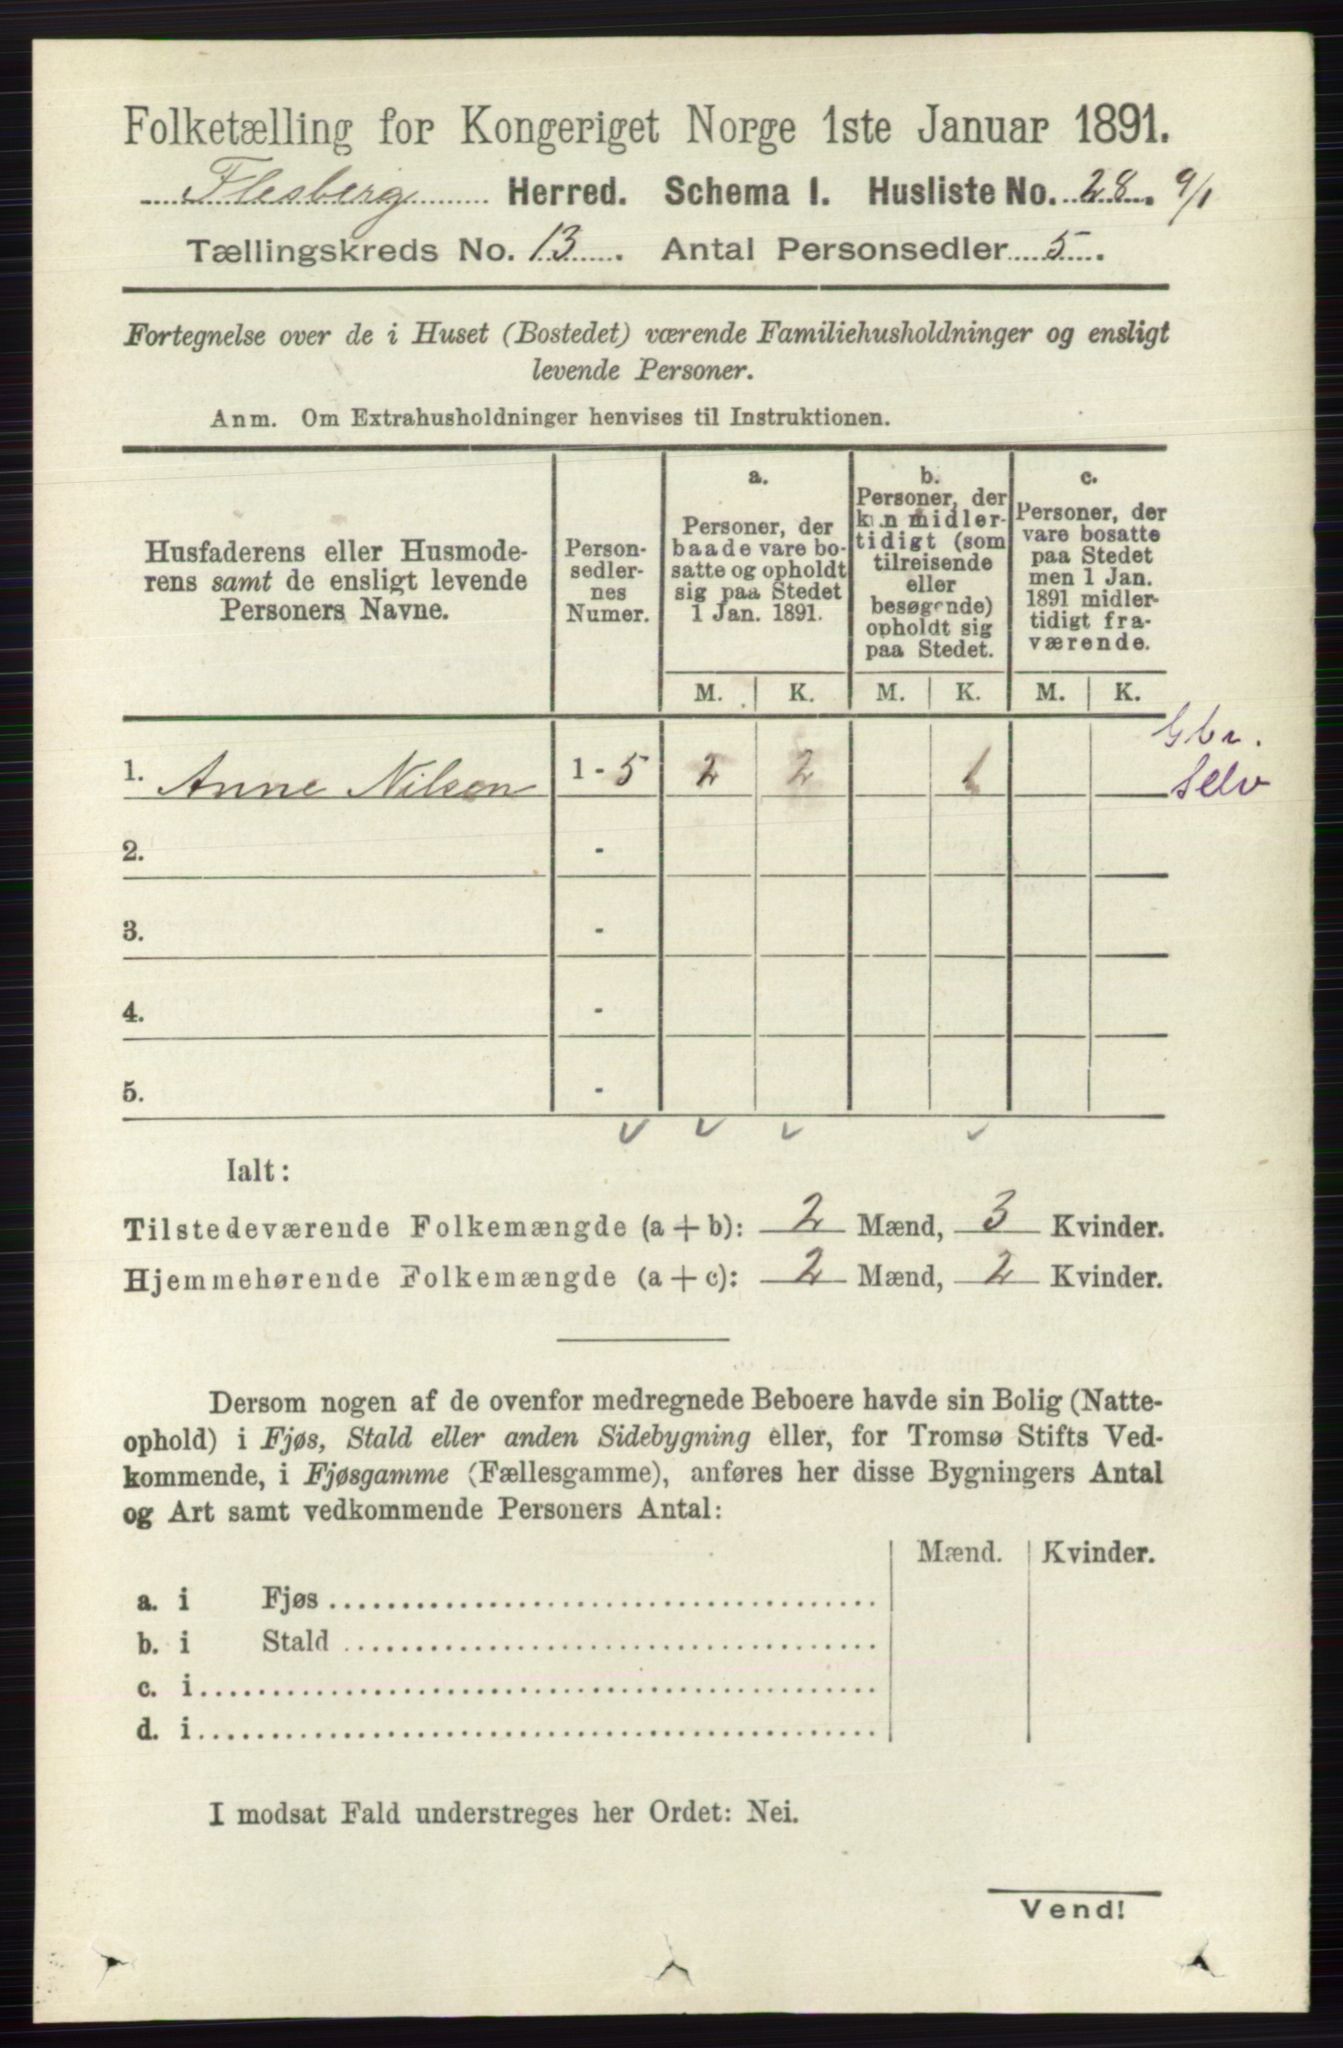 Folketælling for Kongeriget Norge 1ste Januar 1891.
Flesberg Herred. Schema I. Husliste No. 28. 9/1
Tællingskreds No. 13. Antal Personsedler 5.
Fortegnelse over de i Huset (Bostedet) værende Familiehusholdninger og ensligt
levende Personer.
Anm. Om Extrahusholdninger henvises til Instruktionen.
Husfaderens eller Husmode-
rens samt de ensligt levende
Personers Navne.
Person-
sedler-
nes
Numer.
a.
Personer, der
baade vare bo-
satte og opholdt
sig paa Stedet
1 Jan. 1891.
b.
Personer, der
kun midler-
tidigt (som
tilreisende
eller
besøgende)
opholdt sig
paa Stedet.
c.
Personer, der
vare bosatte
paa Stedet
men 1 Jan.
1891 midler-
tidigt fra-
værende.
M. K. M. K. M. K.
1. Anne Nilsen 1 - 5 2 2 1
Gbr.
Selv
2. -
3. -
4. -
5. -
Ialt:
Tilstedeværende Folkemængde (a + b): 2 Mænd, 3 Kvinder.
Hjemmehørende Folkemængde (a + c): 2 Mænd, 2 Kvinder.
Dersom nogen af de ovenfor medregnede Beboere havde sin Bolig (Natte-
ophold) i Fjøs, Stald eller anden Sidebygning eller, for Tromsø Stifts Ved-
kommende, i Fjøsgamme (Fællesgamme), anføres her disse Bygningers Antal
og Art samt vedkommende Personers Antal:
Mænd. Kvinder.
a. i Fjøs
b. i Stald
c. i
d. i
I modsat Fald understreges her Ordet: Nei.
Vend!